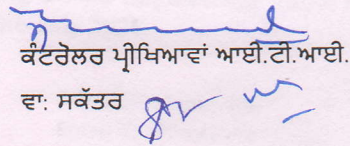 ਕੰਟਰੋਲਰ ਪ੍ਰੀਖਿਆਵਾਂ ਆਈ.ਟੀ.ਆਈ.
ਵਾ: ਸਕੱਤਰ